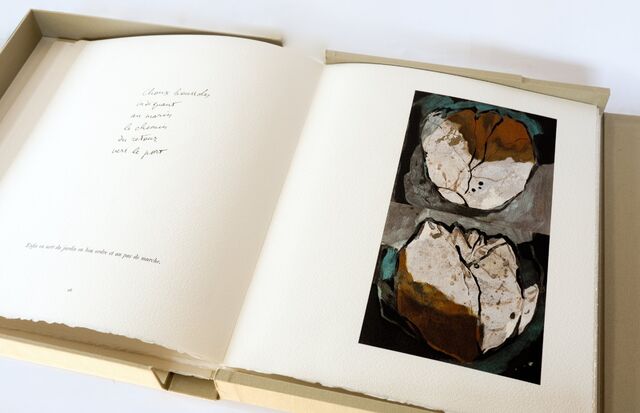 choux boussoles
indiquant
au marin
le chemin
du retour
vers le port
on sort du jardin en bon ordre et au pas de marche.